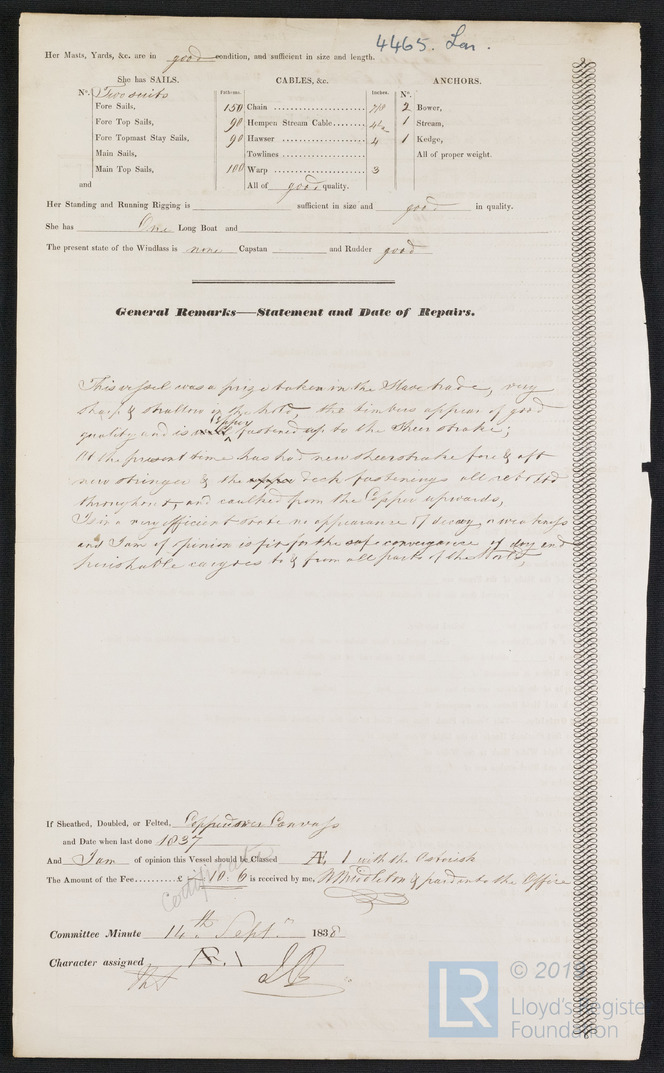 4465. Lon.
Her Masts, Yards, &c. are in good condition, and sufficient in size and length.
She has SAILS. CABLES, &c. ANCHORS.
Nº. Two suits Fathoms. Inches. Nº.
Fore Sails, 150 Chain 7/8 2 Bower,
Fore Top Sails, 90 Hempen Stream Cable 1 Stream,
Fore Topmast Stay Sails, 90 Hawser 4 1 Kedge,
Main Sails, Towlines All of proper weight.
Main Top Sails, 100 Warp 3
and All of good quality.
Her Standing and Running Rigging is sufficient in size and good in quality.
She has One Long Boat and
The present state of the Windlass is none Capstan and Rudder good
General Remarks—Statement and Date of Repairs.
This vessel was a prize taken in the Slave trade, very
sharp & shallow in the hold, the timbers appear of good
quality and is Copper fastened up to the Sheerstrake;
At the present time has had new sheerstrake fore & aft
new stringer & the deck fastenings all
throughout, and caulked from the Copper upwards,
Is in a very efficient state no appearance of decay or weakness
and I am of opinion is fit for the safe conveyance of dry and
perishable cargoes to & from all parts of the World,
If Sheathed, Doubled, or Felted, Coppered over Canvass
and Date when last done 1837
And I am of opinion this Vessel should be Classed Æ 1 with the Asterisk
The Amount of the Fee £ : 10 : 6 is received by me, W Middleton & paid into the Office
Certificate
Committee Minute 14th Septr 1838
Character assigned Æ. 1
LR © 2019
Lloyd's Register
Foundation